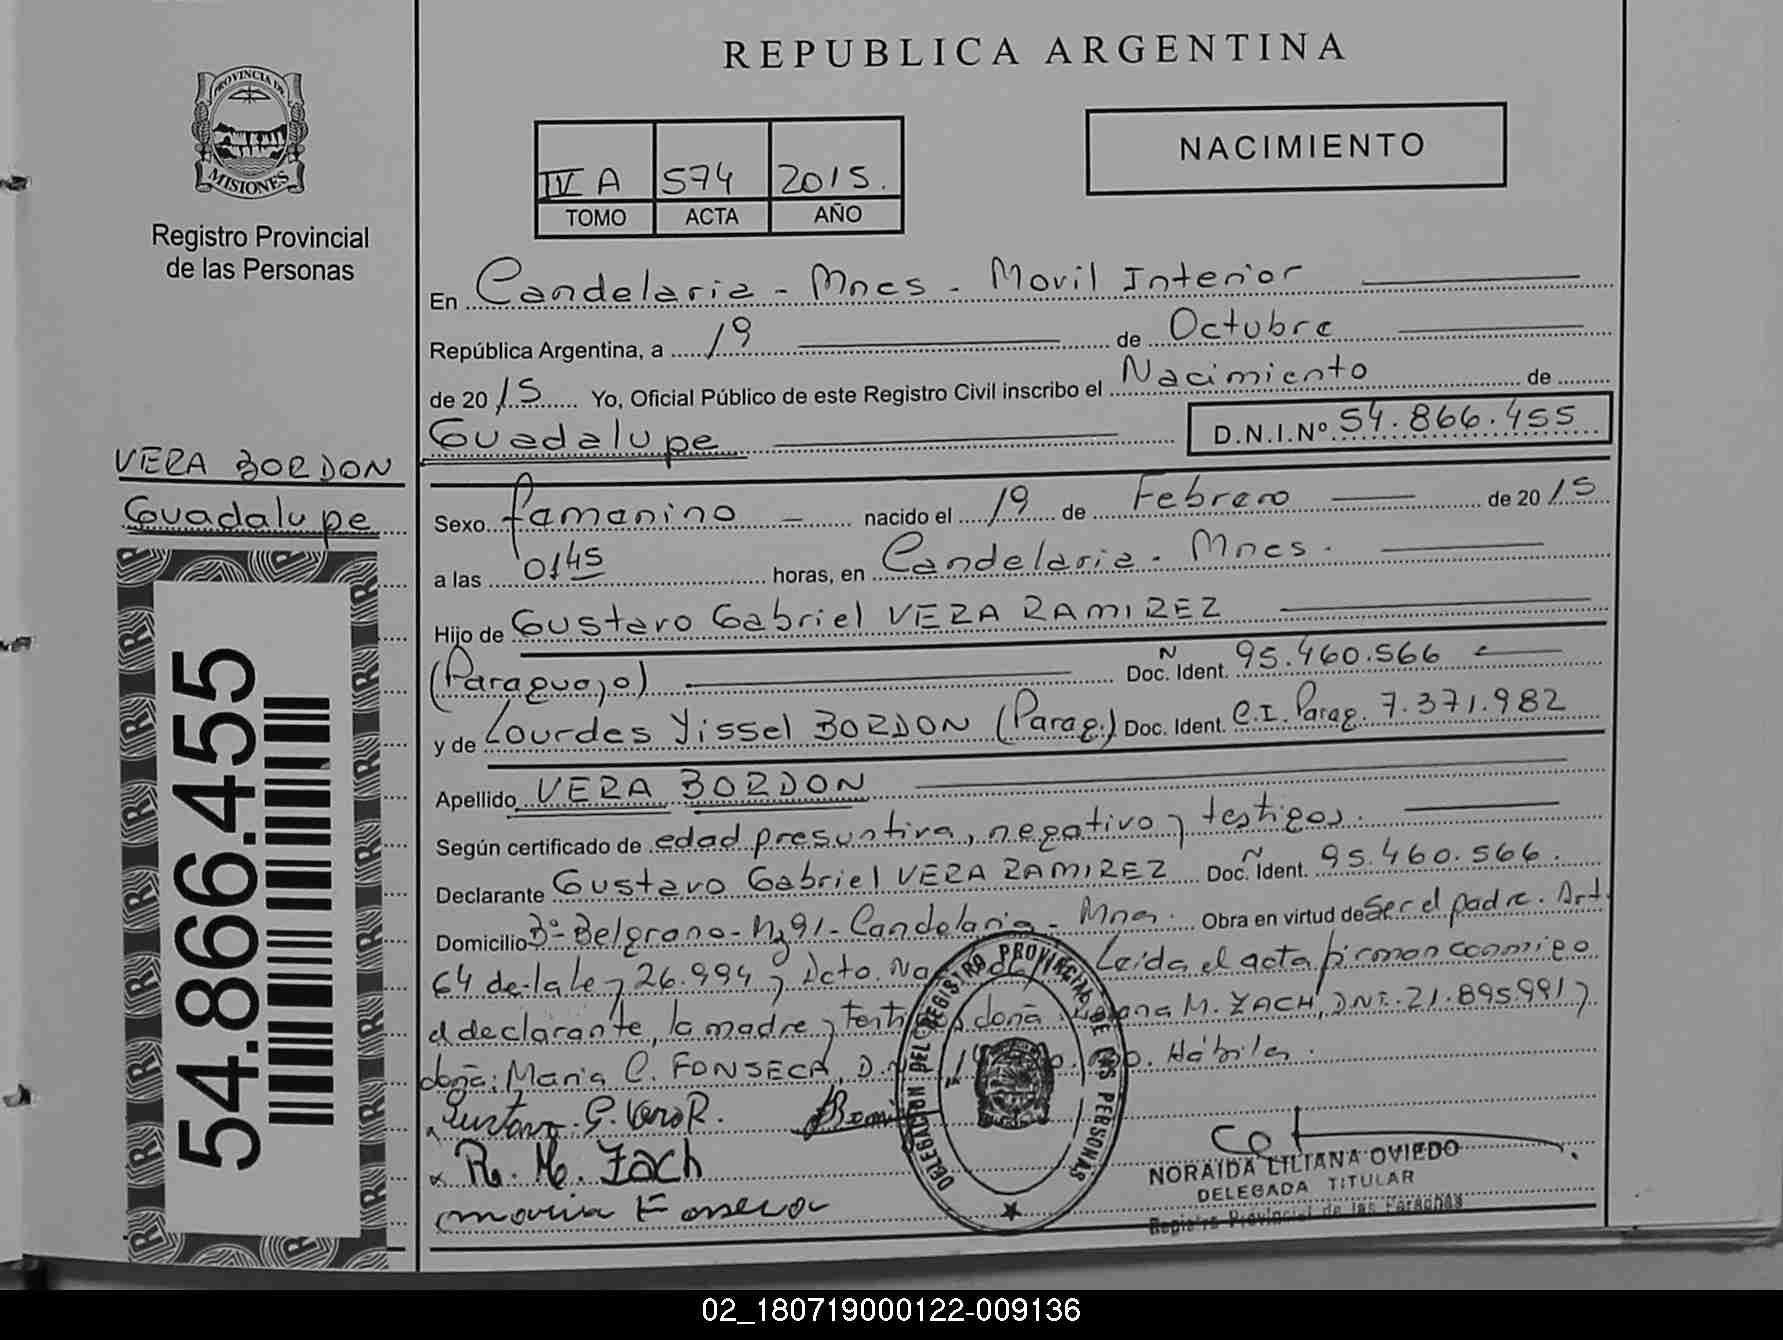 REPUBLICA ARGENTINA
PROVINCIA DE
MISIONES
Registro Provincial
de las Personas
IV A 574 2015.
TOMO ACTA AÑO
NACIMIENTO
En Candelaria - Mnes - Movil Interior
República Argentina, a 19 de Octubre
de 2015 Yo, Oficial Público de este Registro Civil inscribo el Nacimiento de
Guadalupe D.N.I.Nº 54.866.455
VERA BORDON
Guadalupe
54.866.455
Sexo femenino - nacido el 19 de Febrero de 2015
a las 0145 horas, en Candelaria - Mnes.
Hijo de Gustavo Gabriel VERA RAMIREZ
(Paraguayo) N Doc. Ident. 95.460.566
y de Lourdes Yissel BORDON (Parag.) Doc. Ident. C.I. Parag. 7.371.982
Apellido VERA BORDON
Según certificado de edad presuntiva, negativo y testigos.
Declarante Gustavo Gabriel VERA RAMIREZ Doc. N Ident. 95.460.566.
Domicilio Bº Belgrano - Mz 91 - Candelaria - Mnes. Obra en virtud de Ser el padre. Art.
64 de la ley 26.994 y Dcto. Leida el acta firman conmigo
el declarante, la madre y doña M. ZACH, DNI. 21.895.991 y
doña: Maria C. FONSECA, Hábiles.
Gustavo G. Vera R.
R. M. Zach
maria Fonseca
DELEGACION DEL REGISTRO PROVINCIAL DE LAS PERSONAS
NORAIDA LILIANA OVIEDO
DELEGADA TITULAR
Registro Provincial de las Personas
02_180719000122-009136